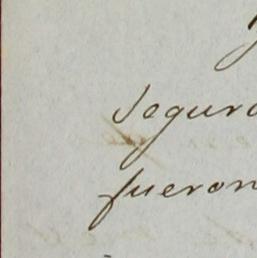 segura
fueron